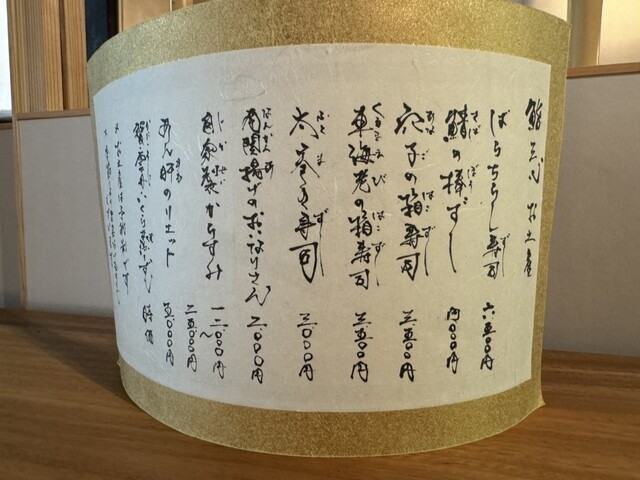 鮨 三心 お土産
ばらちらし寿司 六五〇〇円
鯖の棒ずし 四〇〇〇円
穴子の箱寿司 三五〇〇円
車海老の箱寿司 三五〇〇円
太巻き寿司 三〇〇〇円
南関揚げのおいなりさん 二〇〇〇円
自家製からすみ 一二〇〇〇円〜二五〇〇〇円
あん肝のリエット 五〇〇〇円
蒸しずし 時価
※お土産は予約制です